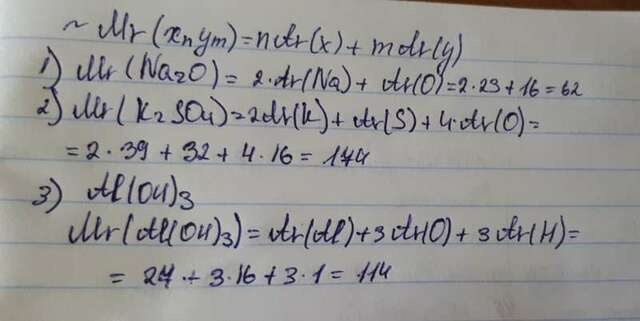 ~ Mr(xnym)=nAr(x)+mAr(y)
1) Mr(Na2O)= 2·Ar(Na)+ Ar(O)=2·23+16=62
2) Mr(K2SO4)=2Ar(K)+Ar(S)+4·Ar(O)=
=2·39+32+4·16=174
3) Al(OH)3
Mr(Al(OH)3)=Ar(Al)+3Ar(O)+3Ar(H)=
= 27+3·16+3·1=114